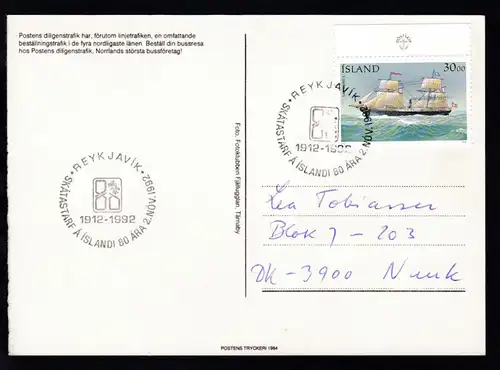 Postens diligenstrafik har, förutom linjetrafiken, en omfattande
beställningstrafik i de fyra nordligaste länen. Beställ din bussresa
hos Postens diligenstrafik, Norrlands största bussföretag!
ÍSLAND 30.00
• REYKJAVÍK •
1912-1992
SKÁTASTARF Á ÍSLANDI 80 ÁRA 2.NOV.1992
• REYKJAVÍK •
1912-1992
SKÁTASTARF Á ÍSLANDI 80 ÁRA 2.NOV.1992
Foto: Fotoklubben Fjälluggian, Tärnaby
Lea Tobiassen
Blok 7 - 203
DK - 3900 Nuuk
POSTENS TRYCKERI 1984